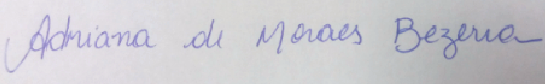 Adriana de Moraes Bezerra